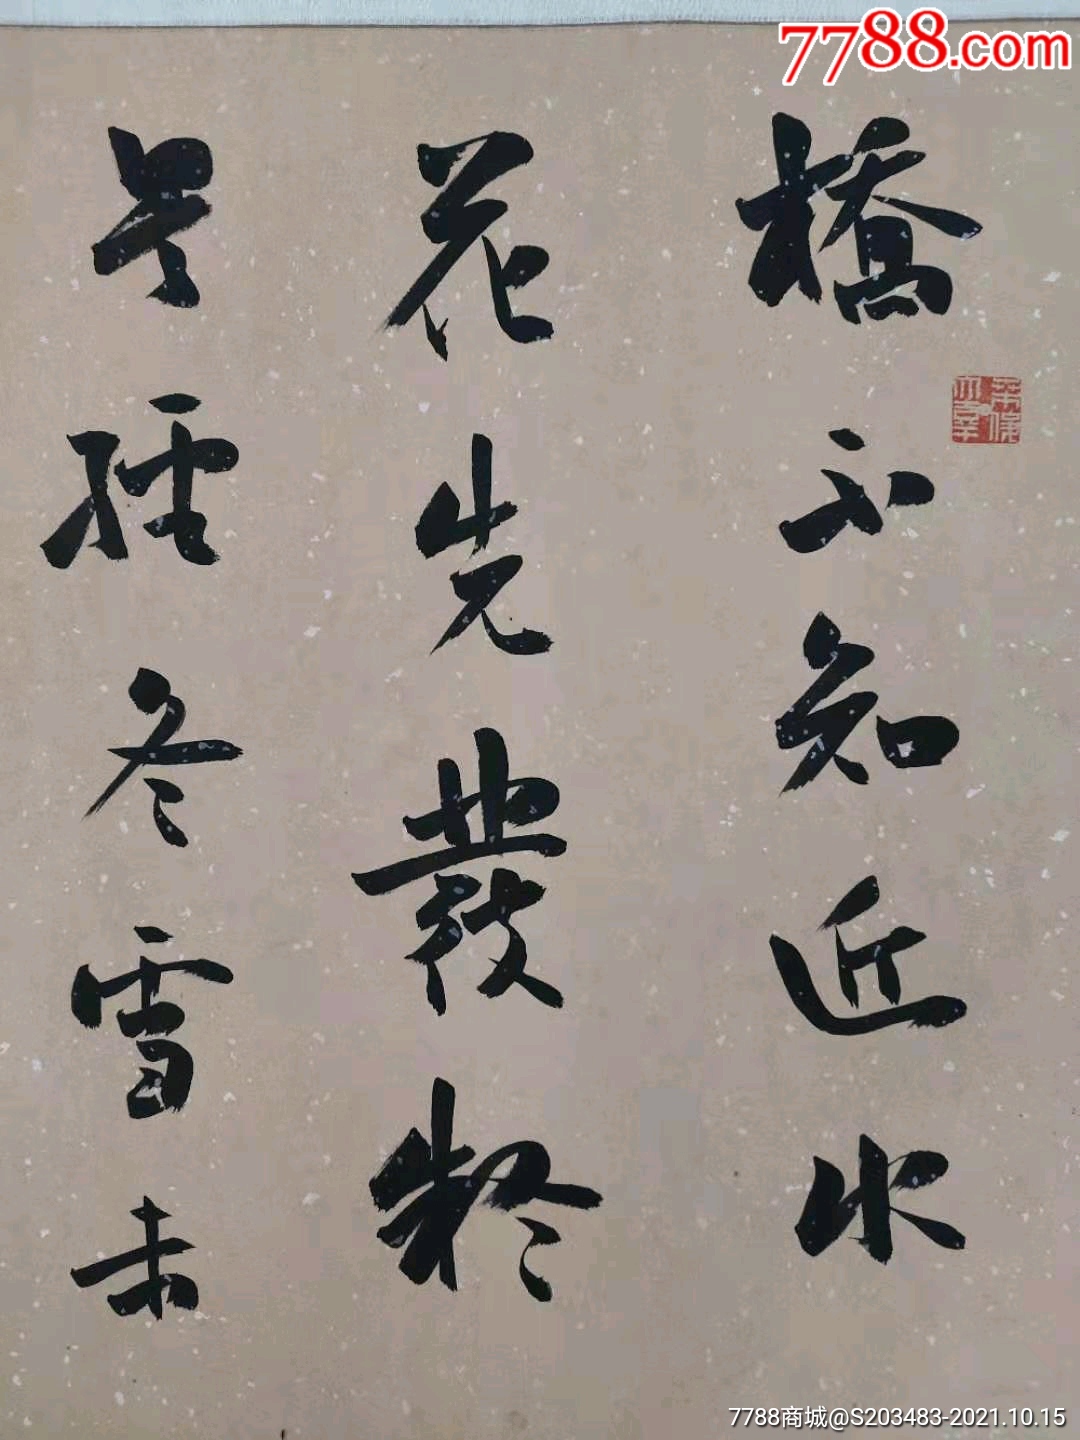 7788.com
橋不知近水
花先發疑
是經冬雪未
7788商城@S203483-2021.10.15